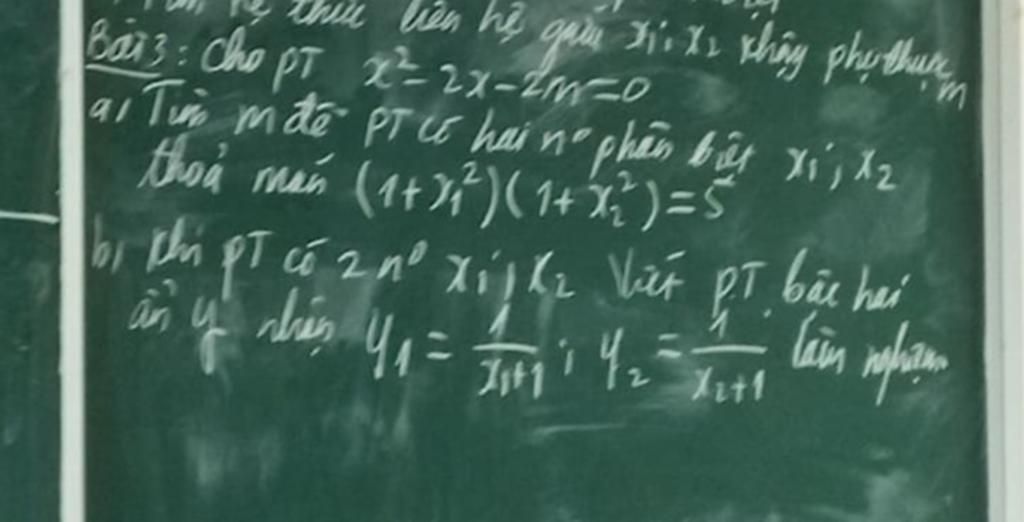 hệ thức liên hệ giữa x₁; x₂ không phụ thuộc m
Bài 3: Cho PT x² - 2x - 2m = 0
a) Tìm m để PT có hai nº phân biệt x₁; x₂
thoả mãn (1 + x₁²)(1 + x₂²) = 5
b) Khi PT có 2 nº x₁; x₂ Viết PT bậc hai
ẩn y nhận y₁ = 1/(x₁+1); y₂ = 1/(x₂+1) làm nghiệm